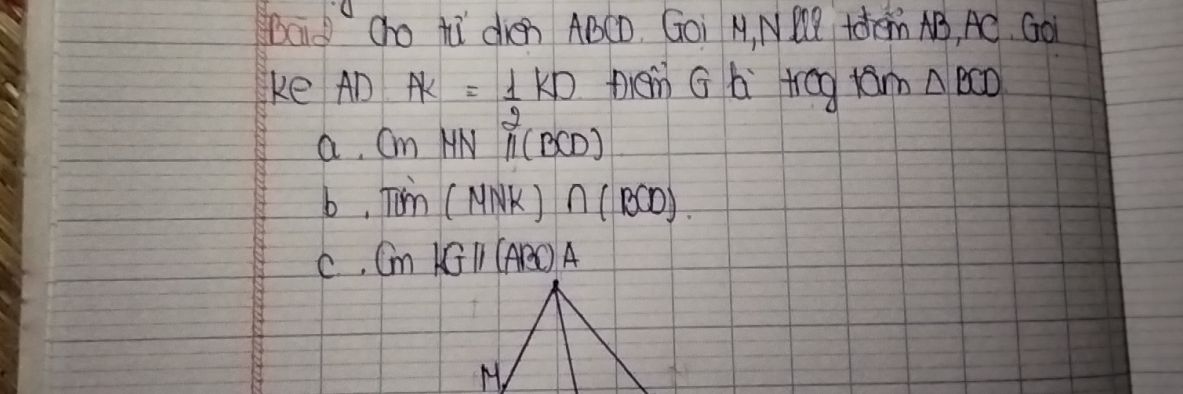 Bài Cho tứ diện ABCD. Gọi M, N lll tđiểm AB, AC. Gọi
K∈ AD AK = 1/2 KD Điểm G là trọg tâm Δ BCD
a. Cm MN // (BCD)
b. Tìm (MNK) ∩ (BCD).
c. Cm KG // (ABC) A
M